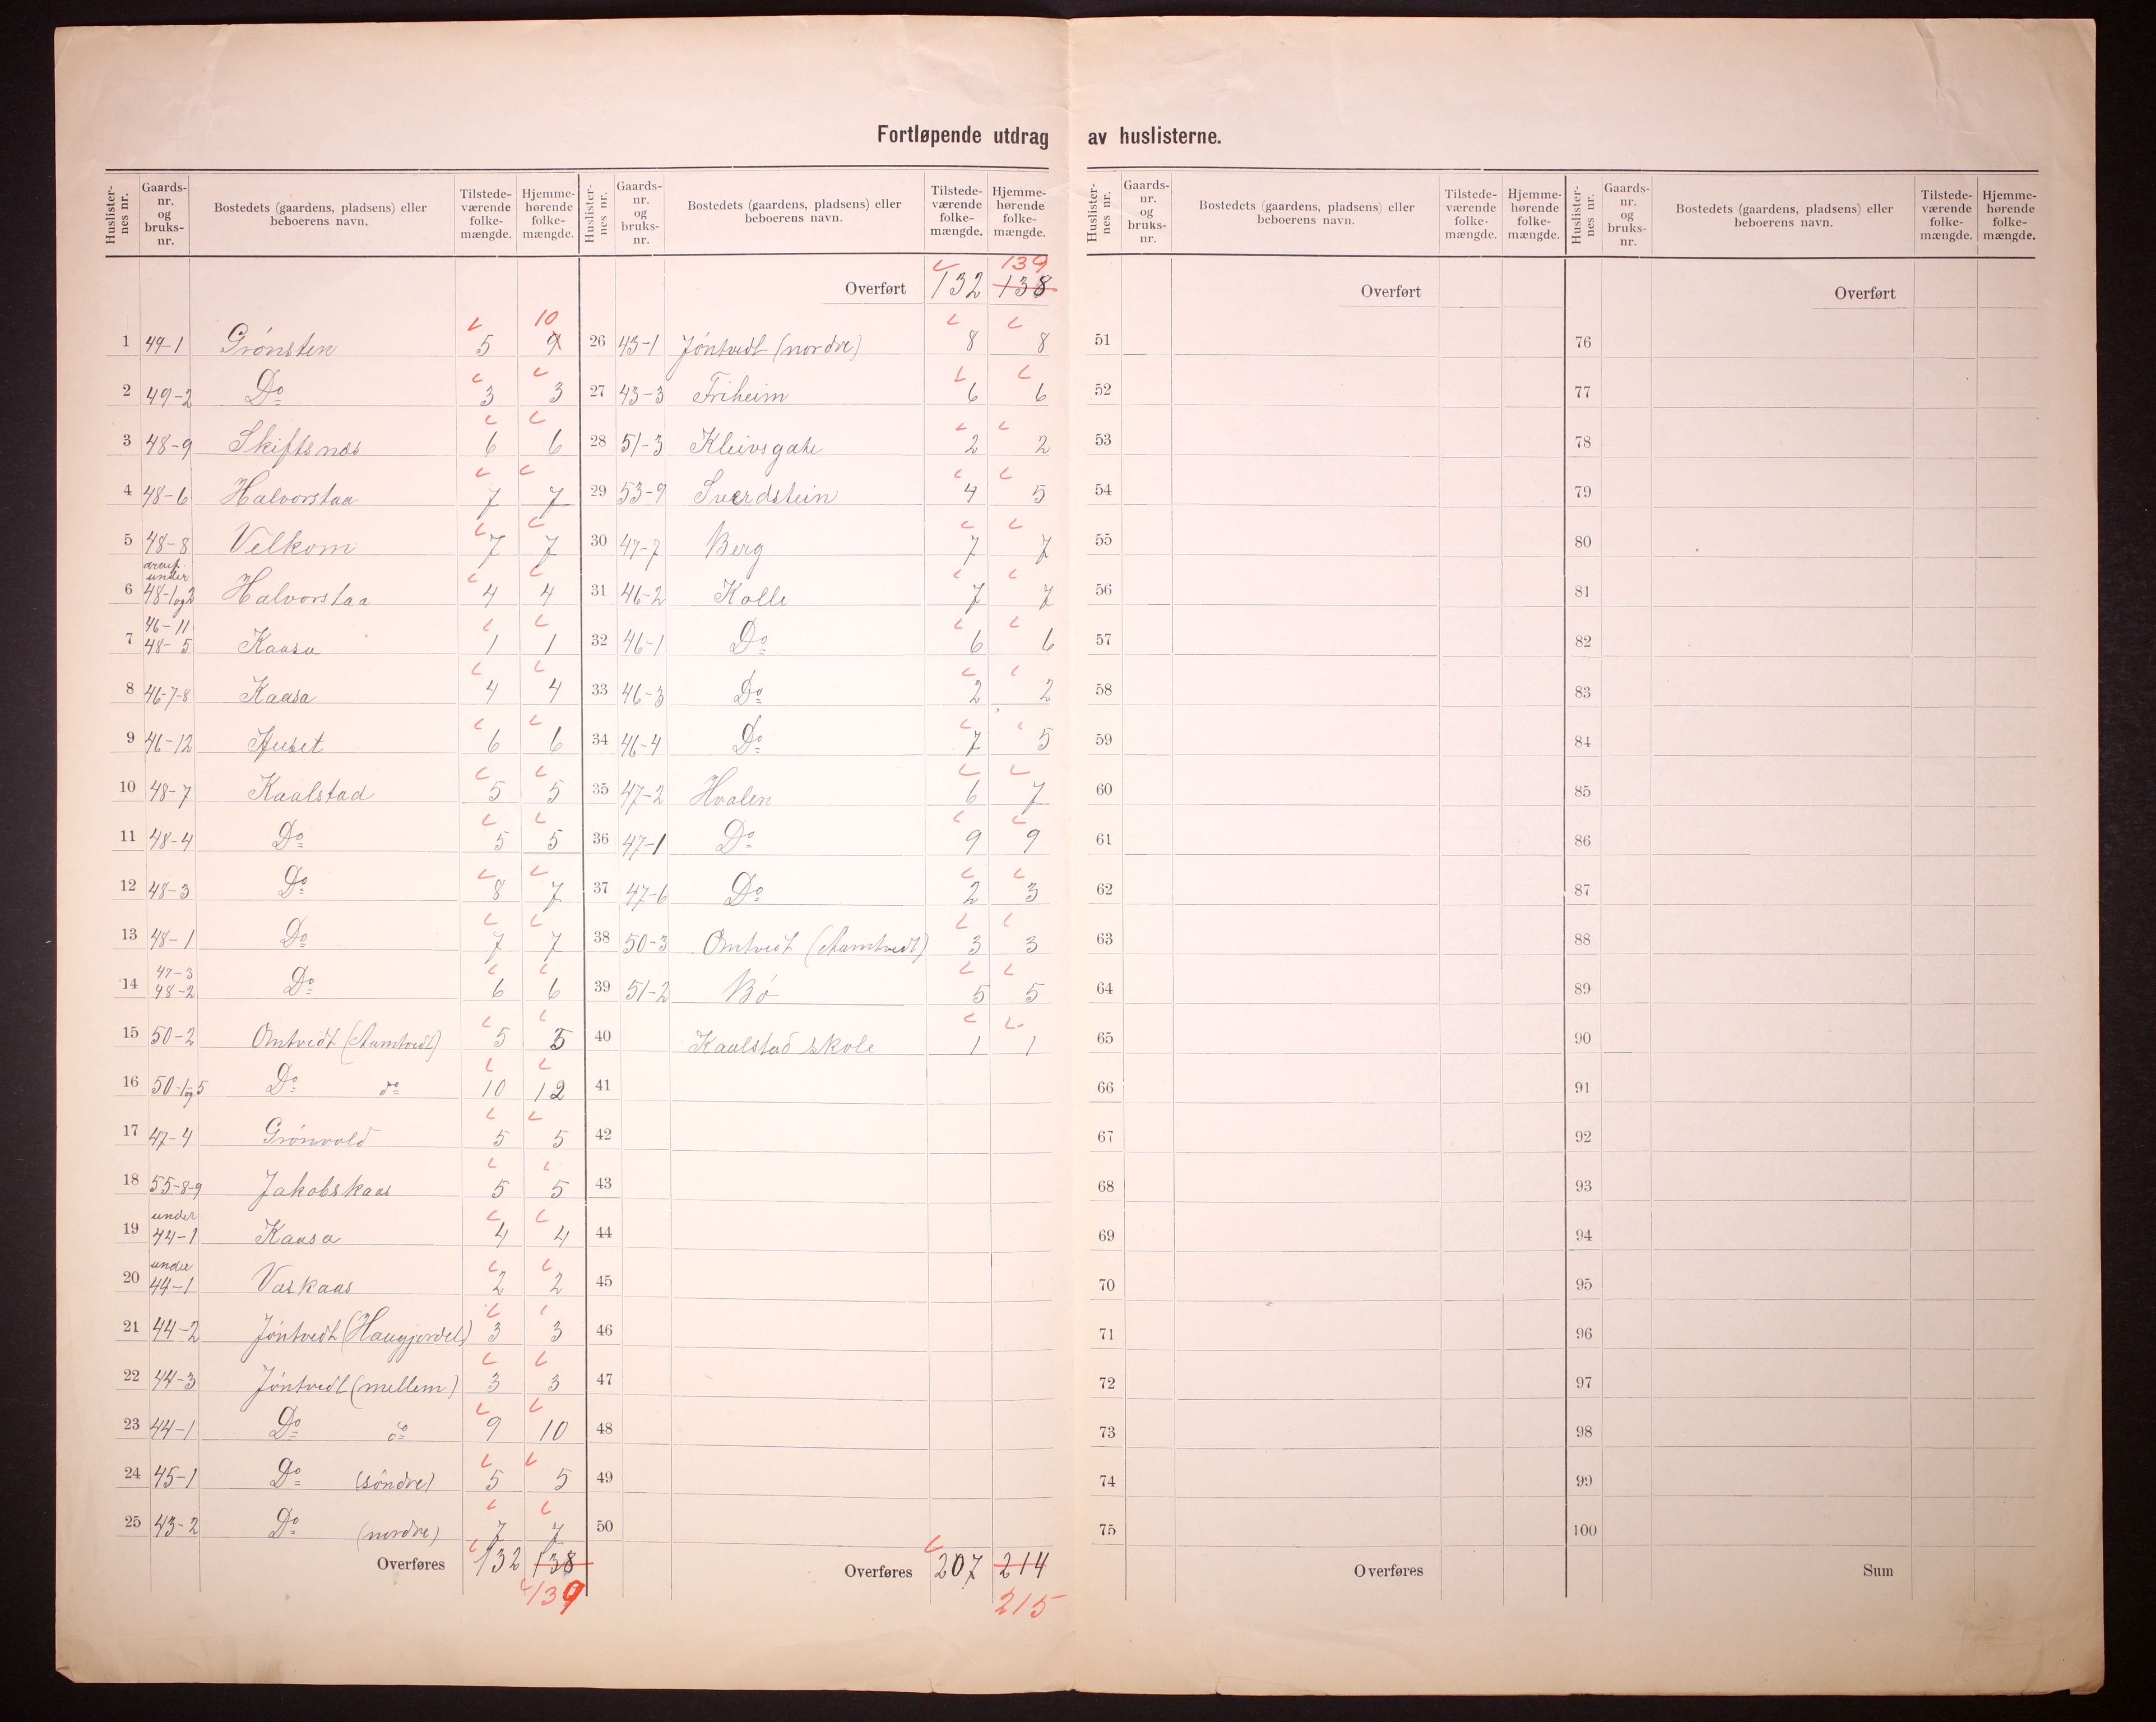 Fortløpende utdrag av huslisterne.
Huslister-nes nr. Gaards-nr. og bruks-nr. Bostedets (gaardens, pladsens) eller beboerens navn. Tilstede-værende folke-mængde. Hjemme-hørende folke-mængde.
1 49-1 Grønsten 5 9 10
2 49-2 Do 3 3
3 48-9 Skiftsnes 6 6
4 48-6 Halvorstaa 7 7
5 48-8 Velkom 7 7
6 under 48-1og2 Halvorstaa 4 4
7 46-11 48-5 Kaasa 1 1
8 46-7-8 Kaasa 4 4
9 46-12 Huset 6 6
10 48-7 Kaalstad 5 5
11 48-4 Do 5 5
12 48-3 Do 8 7
13 48-1 Do 7 7
14 47-3 48-2 Do 6 6
15 50-2 Omtvedt (Aamtvedt) 5 5
16 50-1og5 Do do 10 12
17 47-4 Grønvold 5 5
18 55-8-9 Jakobskaas 5 5
19 under 44-1 Kaasa 4 4
20 under 44-1 Vaskaas 2 2
21 44-2 Jøntvedt (Haugjordet) 3 3
22 44-3 Jøntvedt (mellem) 3 3
23 44-1 Do do 9 10
24 45-1 Do (søndre) 5 5
25 43-2 Do (nordre) 7 7
Overføres 132 138
139
Huslister-nes nr. Gaards-nr. og bruks-nr. Bostedets (gaardens, pladsens) eller beboerens navn. Tilstede-værende folke-mængde. Hjemme-hørende folke-mængde.
139
Overført 132 138
26 43-1 Jøntvedt (nordre) 8 8
27 43-3 Friheim 6 6
28 51-3 Kleivsgate 2 2
29 53-9 Sverdstein 4 5
30 47-7 Berg 7 7
31 46-2 Kolle 7 7
32 46-1 Do 6 6
33 46-3 Do 2 2
34 46-4 Do 7 5
35 47-2 Hvalen 6 7
36 47-1 Do 9 9
37 47-6 Do 2 3
38 50-3 Omtvedt (Aamtvedt) 3 3
39 51-2 Bø 5 5
40 Kaalstad skole 1 1
41
42
43
44
45
46
47
48
49
50
Overføres 207 214
215
Huslister-nes nr. Gaards-nr. og bruks-nr. Bostedets (gaardens, pladsens) eller beboerens navn. Tilstede-værende folke-mængde. Hjemme-hørende folke-mængde.
Overført
51
52
53
54
55
56
57
58
59
60
61
62
63
64
65
66
67
68
69
70
71
72
73
74
75
Overføres
Huslister-nes nr. Gaards-nr. og bruks-nr. Bostedets (gaardens, pladsens) eller beboerens navn. Tilstede-værende folke-mængde. Hjemme-hørende folke-mængde.
Overført
76
77
78
79
80
81
82
83
84
85
86
87
88
89
90
91
92
93
94
95
96
97
98
99
100
Sum